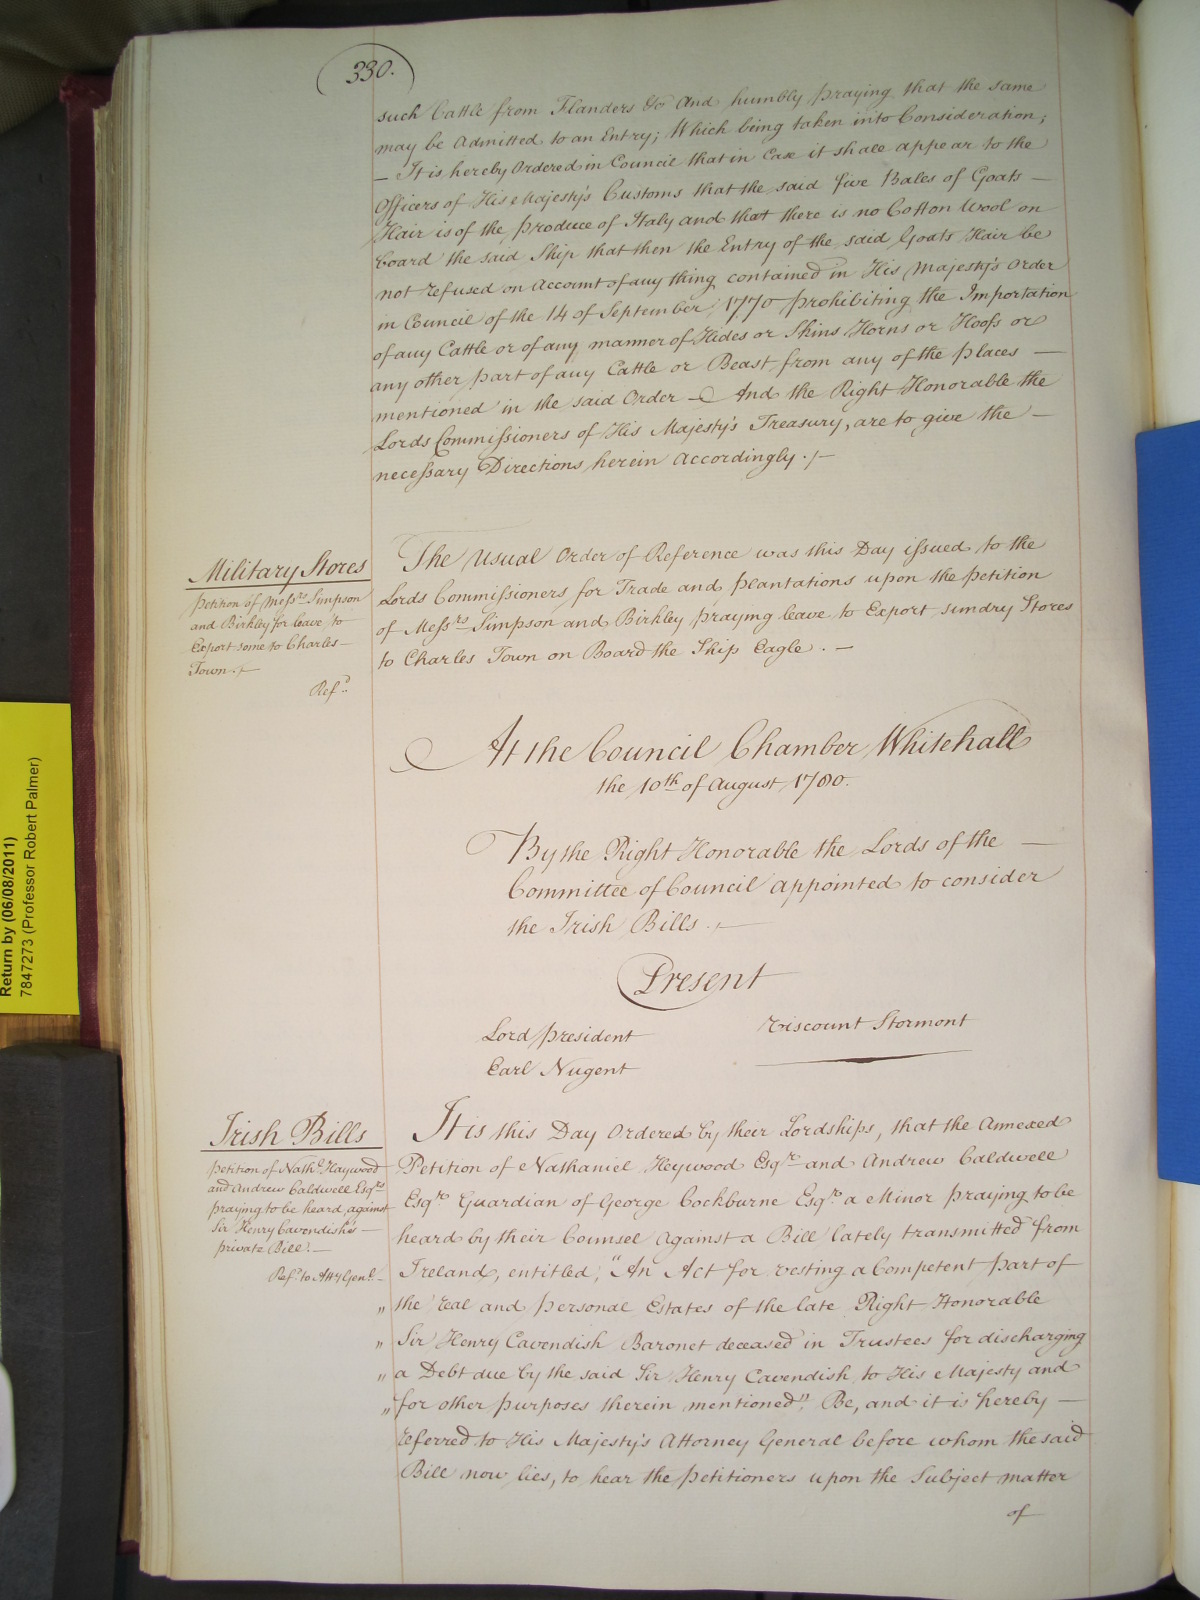 330.
such Cattle from Flanders &c And humbly praying that the same
may be Admitted to an Entry; Which being taken into Consideration;
— It is hereby Ordered in Council that in Case it shall appear to the
Officers of His Majesty's Customs that the said five Bales of Goats —
Hair is of the produce of Italy and that there is no Cotton Wool on
board the said Ship that then the Entry of the said Goats Hair be
not refused on Account of any thing contained in His Majesty's Order
in Council of the 14 of September 1770 prohibiting the Importation
of any Cattle or of any manner of Hides or Skins Horns or Hoofs or
any other part of any Cattle or Beast from any of the places —
mentioned in the said Order — And the Right Honorable the
Lords Commissioners of His Majesty's Treasury, are to give the —
necessary Directions herein Accordingly. /—
Military Stores
Petition of Mess.rs Simpson
and Birkley for leave to
Export some to Charles—
Town. /—
Ref.d
The Usual Order of Reference was this Day issued to the
Lords Commissioners for Trade and plantations upon the petition
of Mess.rs Simpson and Birkley praying leave to Export sundry Stores
to Charles Town on Board the Ship Eagle. —
At the Council Chamber Whitehall
the 10th of August 1780.
By the Right Honorable the Lords of the —
Committee of Council appointed to consider
the Irish Bills. /—
Present
Lord President
Viscount Stormont
Earl Nugent
Irish Bills
Petition of Nath.l Haywood
and Andrew Caldwell Esq.rs
praying to be heard against
Sir Henry Cavendish's —
private Bill. —
Ref.d to Atty Gen.l —
It is this Day Ordered by their Lordships, that the Annexed
Petition of Nathaniel Heywood Esq.re and Andrew Caldwell
Esq.re Guardian of George Cockburne Esq.re a Minor praying to be
heard by their Counsel against a Bill lately transmitted from
Ireland, entitled, "An Act for vesting a Competent part of
„ the real and personal Estates of the late Right Honorable
„ Sir Henry Cavendish Baronet deceased in Trustees for discharging
„ a Debt due by the said Sir Henry Cavendish to His Majesty and
„ for other purposes therein mentioned", Be, and it is hereby —
referred to His Majesty's Attorney General before whom the said
Bill now lies, to hear the petitioners upon the Subject matter
of
Return by (06/08/2011)
7847273 (Professor Robert Palmer)